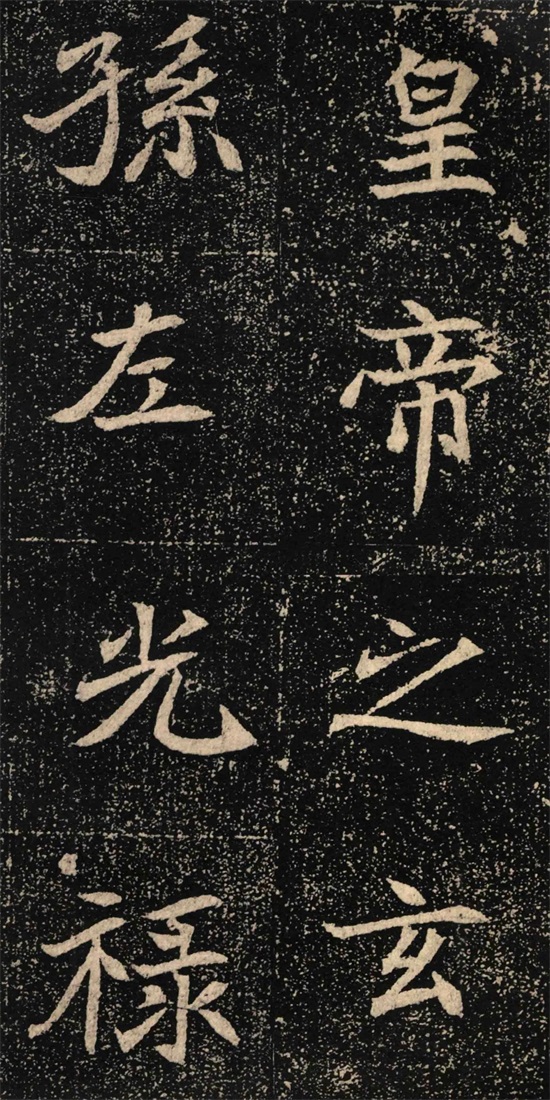 皇帝之玄
孫左光禄